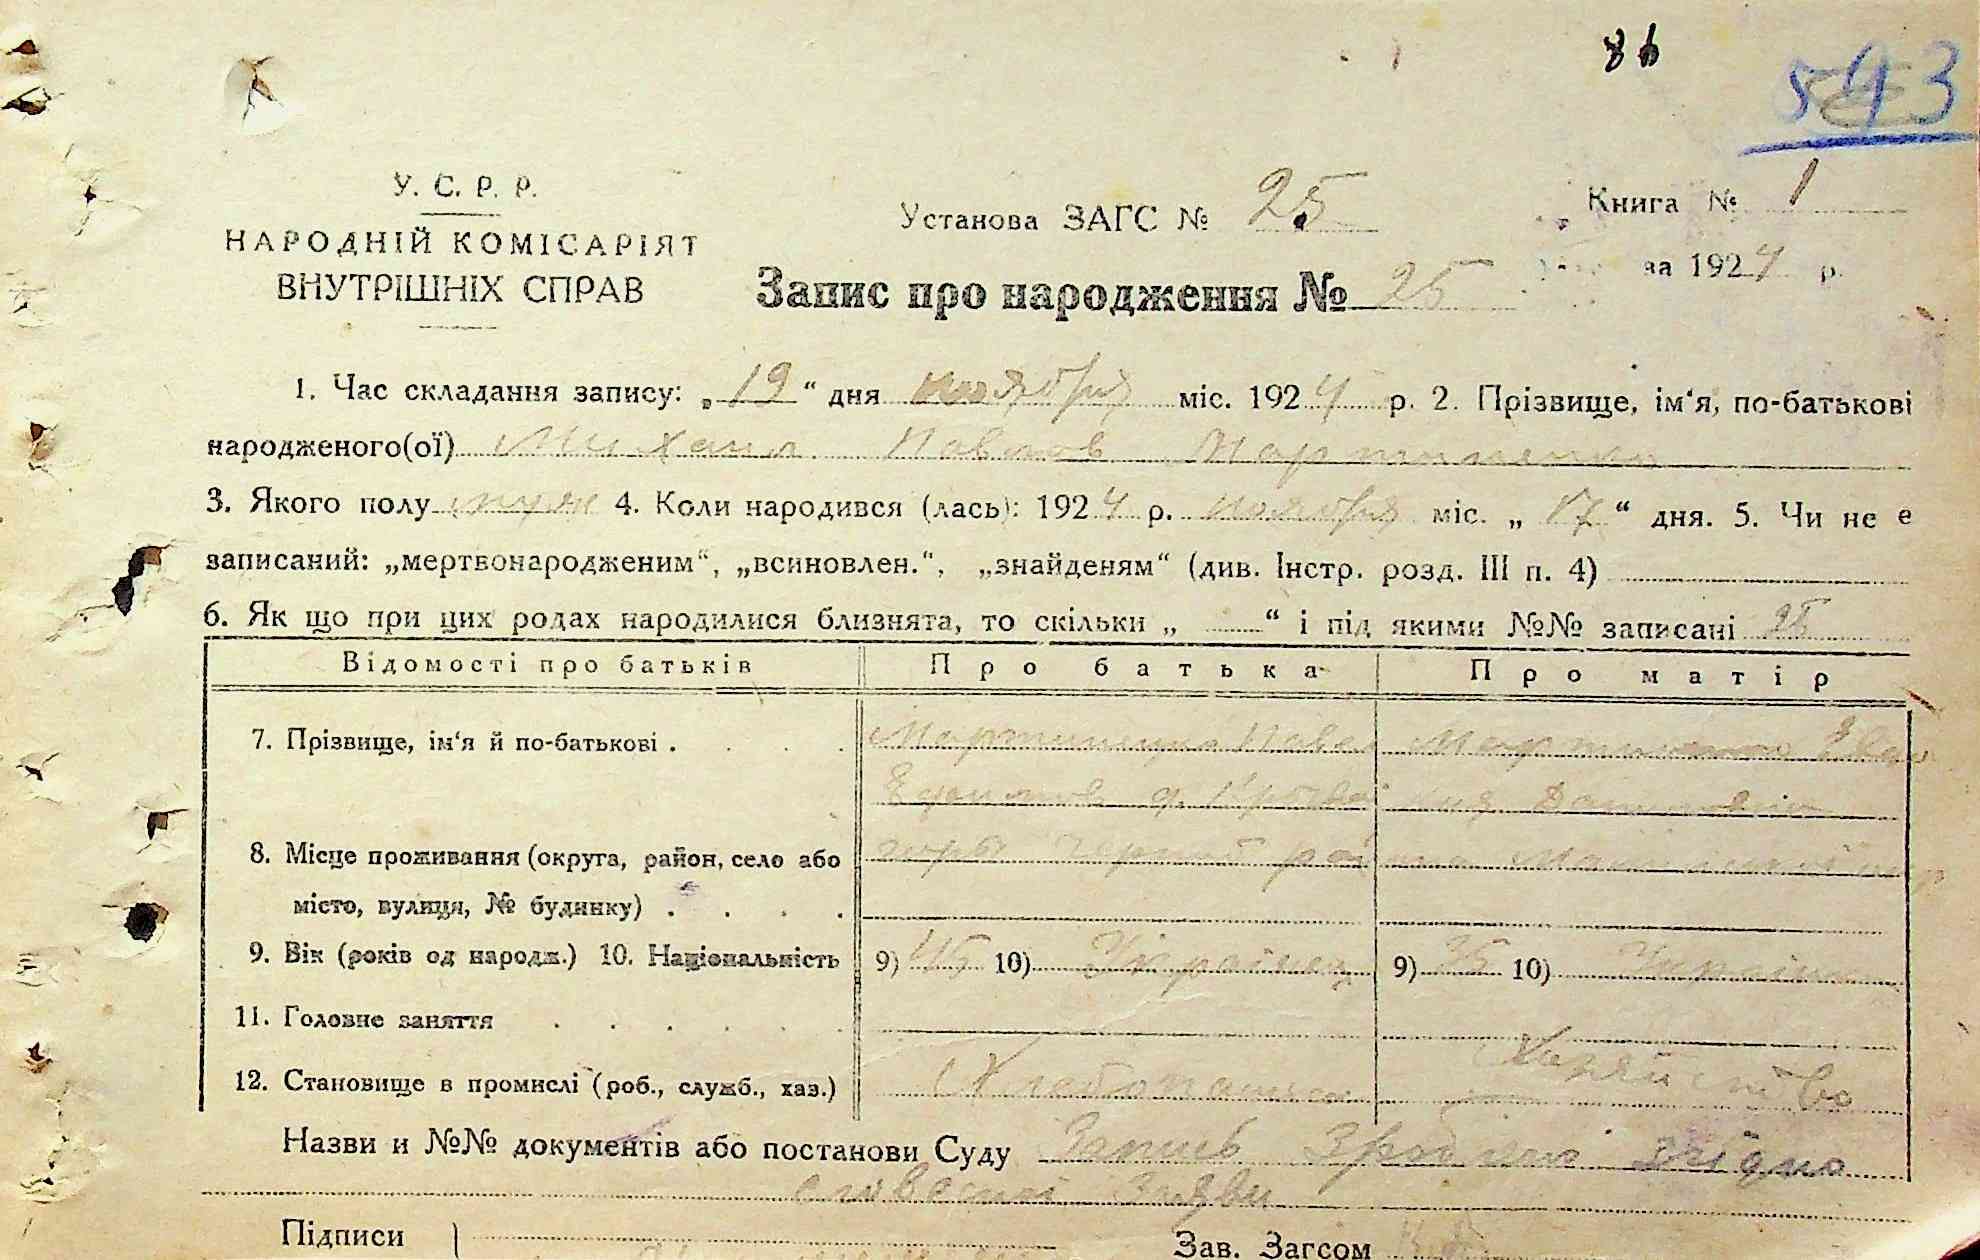 86
543
У. С. Р. Р.
НАРОДНІЙ КОМІСАРІЯТ
ВНУТРІШНІХ СПРАВ
Установа ЗАГС № 25
Книга № 1
за 1924 р.
Запис про народження № 25
1. Час складання запису: „19“ дня ноября міс. 1924 р. 2. Прізвище, ім‘я, по-батькові
народженого(ої) Михаил Павлов Мартиненко
3. Якого полу муж 4. Коли народився (лась): 1924 р. ноября міс. „17“ дня. 5. Чи не є
записаний: „мертвонародженим“, „всиновлен.“, „знайденям“ (див. Інстр. розд. III п. 4)
6. Як що при цих родах народилися близнята, то скільки „ “ і під якими №№ записані 25
Відомості про батьків Про батька Про матір
7. Прізвище, ім‘я й по-батькові . . . . Мартиненко Павел Мартиненко
8. Місце проживання (округа, район, село або
місто, вулиця, № будинку) . . . .
9. Вік (років од народж.) 10. Національність 9) 45 10) Українец 9) 35 10) Українка
11. Головне заняття . . . . . .
12. Становище в промислі (роб., служб., хаз.) Хлебопашец Хазяйство
Назви и №№ документів або постанови Суду Запись зроблено згідно
словесної заяви
Підписи
Зав. Загсом